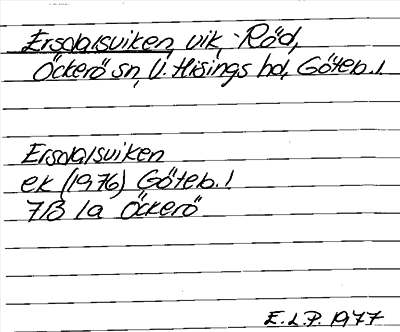 Ersdalsviken, vik, Röd,
Öckerö sn, V. Hisings hd, Göteb. l.
Ersdalsviken
ek (1976) Göteb. l
7B 1a Öckerö
E.L.P. 1977